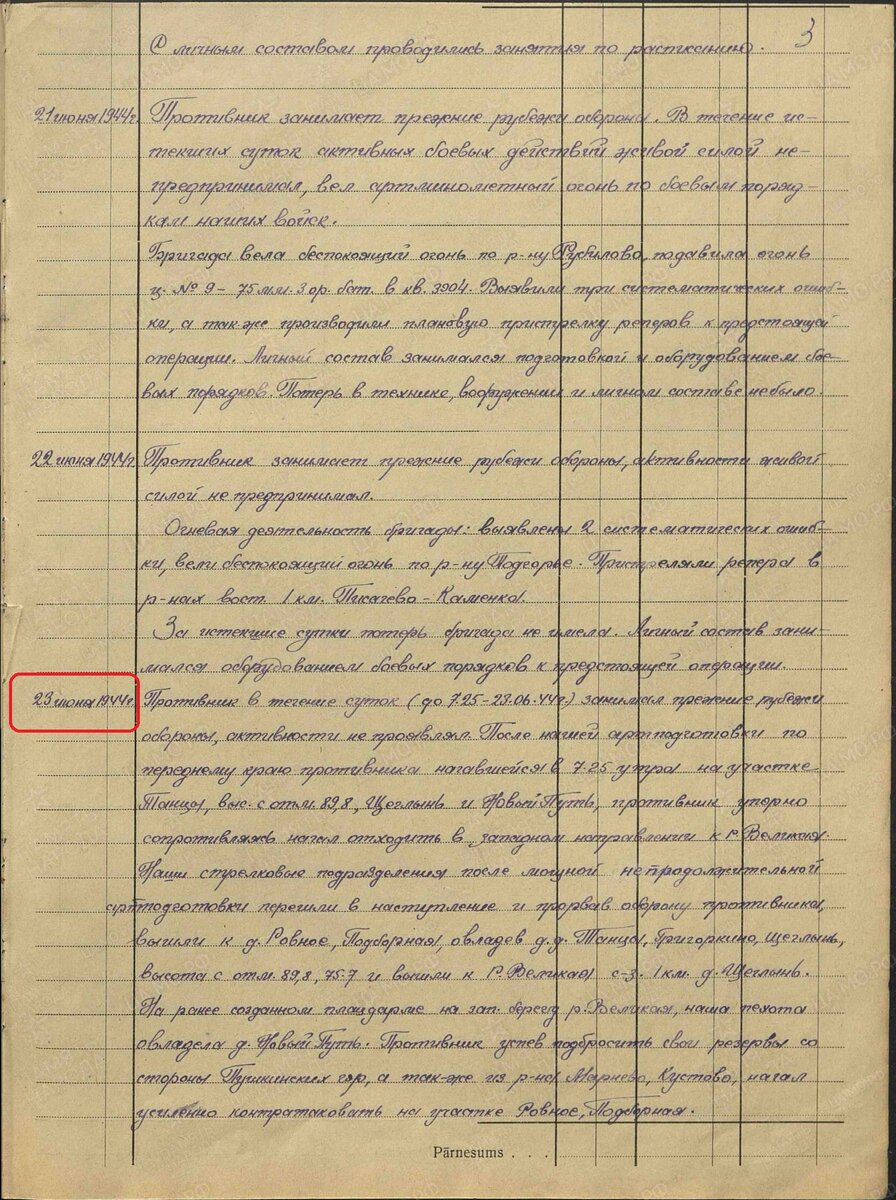 3
С личным составом проводились занятия по расписанию.
21 июня 1944г. Противник занимает прежние рубежи обороны. В течение ис-
текших суток активных боевых действий живой силой не-
предпринимал, вел артминометный огонь по боевым поряд-
кам наших войск.
Бригада вела беспокоящий огонь по р-ну Рубилово, подавила огонь
ц. № 9 - 75 м.м. 3 ор. бат. в кв. 3904. Выявили три систематических ошиб-
ки, а так же производили плановую пристрелку реперов к предстоящей
операции. Личный состав занимался подготовкой и оборудованием бое-
вых порядков. Потерь в технике, вооружении и личном составе не было.
22 июня 1944г. Противник занимает прежние рубежи обороны, активности живой
силой не предпринимал.
Огневая деятельность бригады: выявлены 2 систематических ошиб-
ки, вели беспокоящий огонь по р-ну Подгорье. Пристреляли репера в
р-нах вост. 1 км. Писачево - Каменка.
За истекшие сутки потерь бригада не имела. Личный состав зани-
мался оборудованием боевых порядков к предстоящей операции.
23 июня 1944г. Противник в течение суток (до 7.25 - 23.06.44г.) занимал прежние рубежи
обороны, активности не проявлял. После нашей артподготовки по
переднему краю противника начавшейся в 7-25 утра на участке
Танцы, выс. с отм. 89,8, Щеглынь и Новый Путь, противник упорно
сопротивляясь начал отходить в западном направлении к р. Великая.
Наши стрелковые подразделения после мощной непродолжительной
артподготовки перешли в наступление и прорвав оборону противника,
вышли к д. Ровное, Подборная, овладев д.д. Танцы, Григоркино, Щеглынь,
высота с отм. 89,8, 75-7 и вышли к р. Великая с-з. 1 км. д. Щеглынь.
На ранее созданном плацдарме на зап. берегу р. Великая, наша пехота
овладела д. Новый Путь. Противник успев подбросить свои резервы со
стороны Пушкинских гор, а так-же из р-на Марнево, Кустово, начал
усиленно контратаковать на участке Ровное, Подборная.
Pārnesums . . .